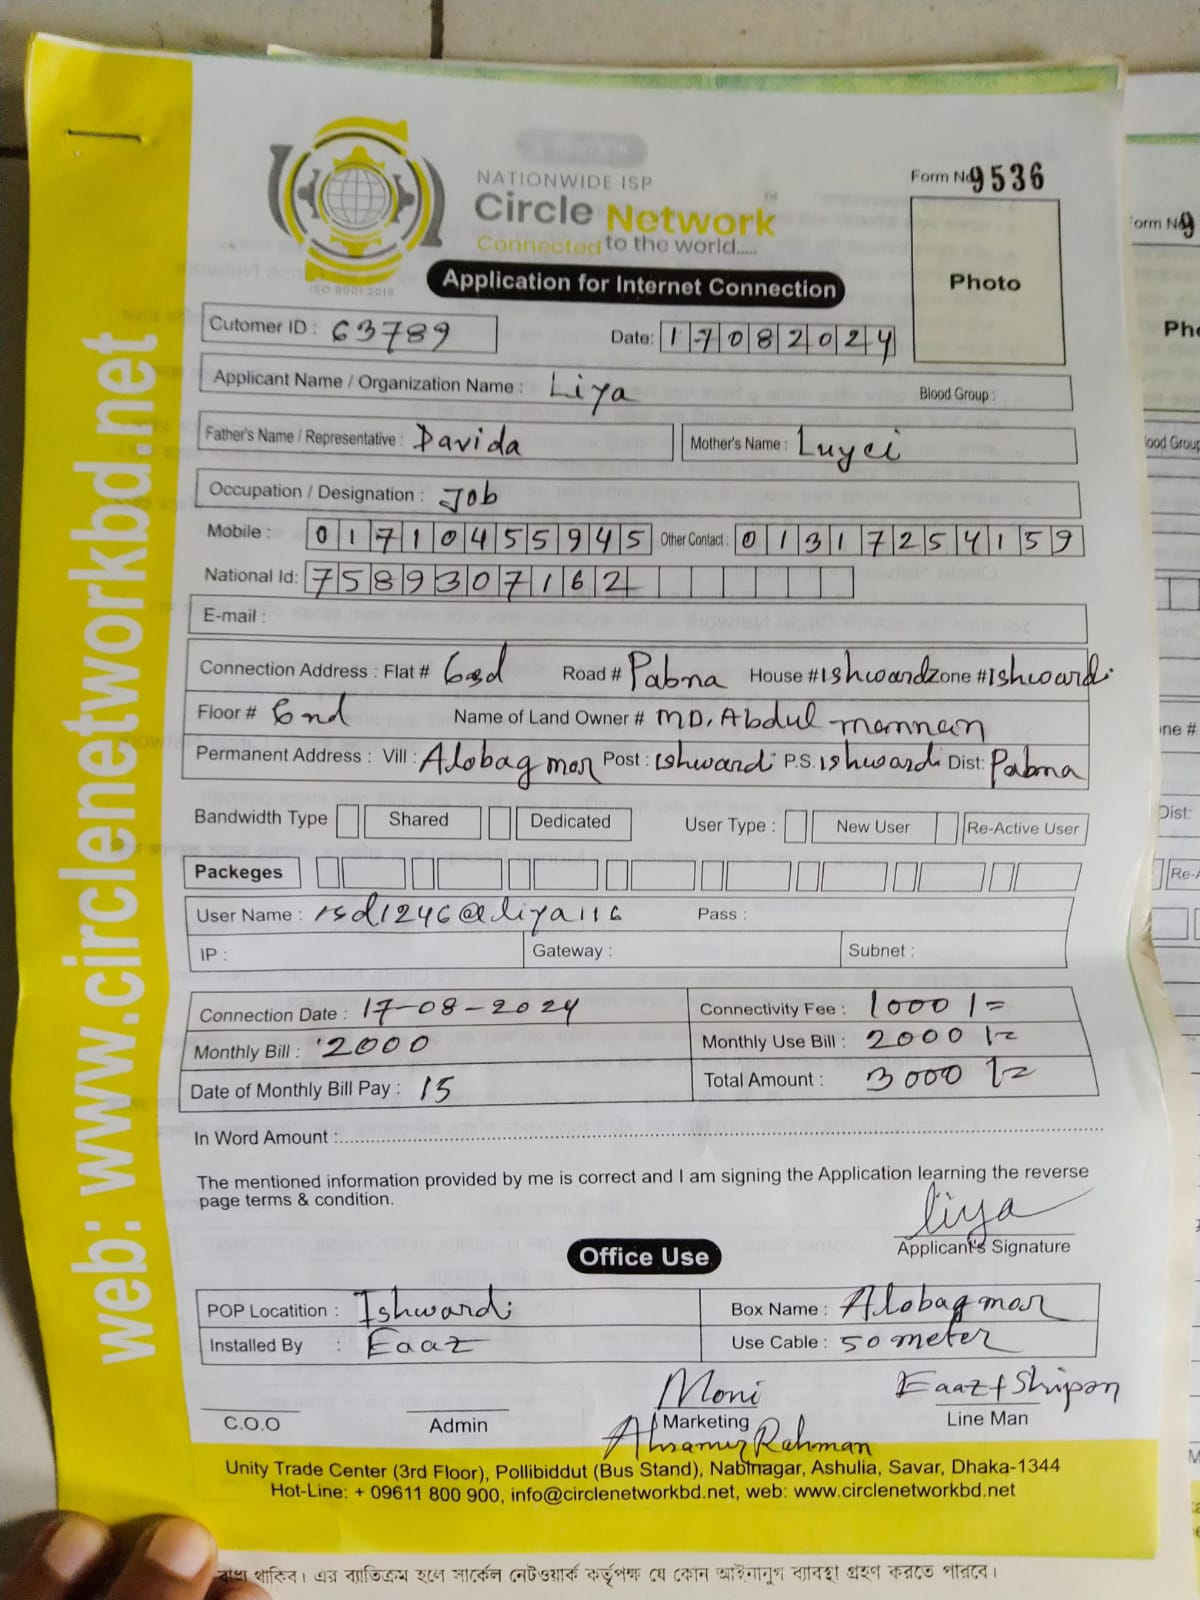 NATIONWIDE ISP
Circle Network
Connected to the world.....
ISO 9001:2015
Form No 9536
Photo
Application for Internet Connection
Cutomer ID : 63789 Date: 17082024
Applicant Name / Organization Name : Liya Blood Group :
Father's Name / Representative : Davida Mother's Name : Luyei
Occupation / Designation : Job
Mobile : 01710455945 Other Contact : 01317254159
National Id: 7589307162
E-mail :
Connection Address : Flat # Road # Pabna House # Ishwardi Zone # Ishwardi
Floor # Name of Land Owner # MD. Abdul mannan
Permanent Address : Vill : Alobag mor Post : Ishwardi P.S. Ishwardi Dist: Pabna
Bandwidth Type Shared Dedicated User Type : New User Re-Active User
Packeges
User Name : isd1246@liya116 Pass :
IP : Gateway : Subnet :
Connection Date : 17-08-2024 Connectivity Fee : 1000/=
Monthly Bill : 2000 Monthly Use Bill : 2000/=
Date of Monthly Bill Pay : 15 Total Amount : 3000/=
In Word Amount :
The mentioned information provided by me is correct and I am signing the Application learning the reverse
page terms & condition.
liya
Applicant's Signature
Office Use
POP Locatition : Ishwardi Box Name : Alobag mor
Installed By : Eaaz Use Cable : 50 meter
Moni Eaaz + Shipon
C.O.O Admin Marketing Line Man
Rahman
Unity Trade Center (3rd Floor), Pollibiddut (Bus Stand), Nabinagar, Ashulia, Savar, Dhaka-1344
Hot-Line: + 09611 800 900, info@circlenetworkbd.net, web: www.circlenetworkbd.net
web: www.circlenetworkbd.net
থাকিব। এর ব্যাতিক্রম হলে সার্কেল নেটওয়ার্ক কর্তৃপক্ষ যে কোন আইনানুগ ব্যাবস্থা গ্রহণ করতে পারবে।